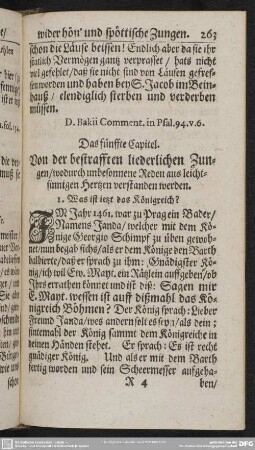 wider hön' und spöttische Zungen. 263
schon die Läuse beissen! Endlich aber da sie ihr
stattlich Vermögen gantz verprasset / hats nicht
viel gefehlet/daß sie nicht sind von Läusen gefres-
sen worden und haben bey S. Jacob im Bein-
hauß / elendiglich sterben und verderben
müssen.
D. Bakii Comment. in Psal. 94. v. 6.
Das fünffte Capitel.
Von der bestrafften liederlichen Zun-
gen/wodurch unbesonnene Reden aus leicht-
sinnigen Hertzen verstanden werden.
1. Was ist ietzt das Königreich?
IM Jahr 1461. war zu Prag ein Bader/
Namens Janda/ welcher mit dem Kö-
nige Georgio Schimpff zu üben gewoh-
net/nun begab sichs/als er dem Könige den Barth
balbierte/daß er sprach zu ihm: Gnädigster Kö-
nig/ich wil Ew. Mayt. ein Rätzlein auffgeben/ob
Ihrs errathen könnet und ist diß: Sagen mir
E. Mayt. wessen ist auff dißmahl das Kö-
nigreich Böhmen? Der König sprach: Lieber
Freund Janda/wes anders solt es seyn/als dein;
sintemahl der König sammt dem Königreiche in
deinen Händen stehet. Er sprach: Es ist recht
gnädiger König. Und als er mit dem Barth
fertig worden und sein Scheermesser auffgeha-
R 4 ben/